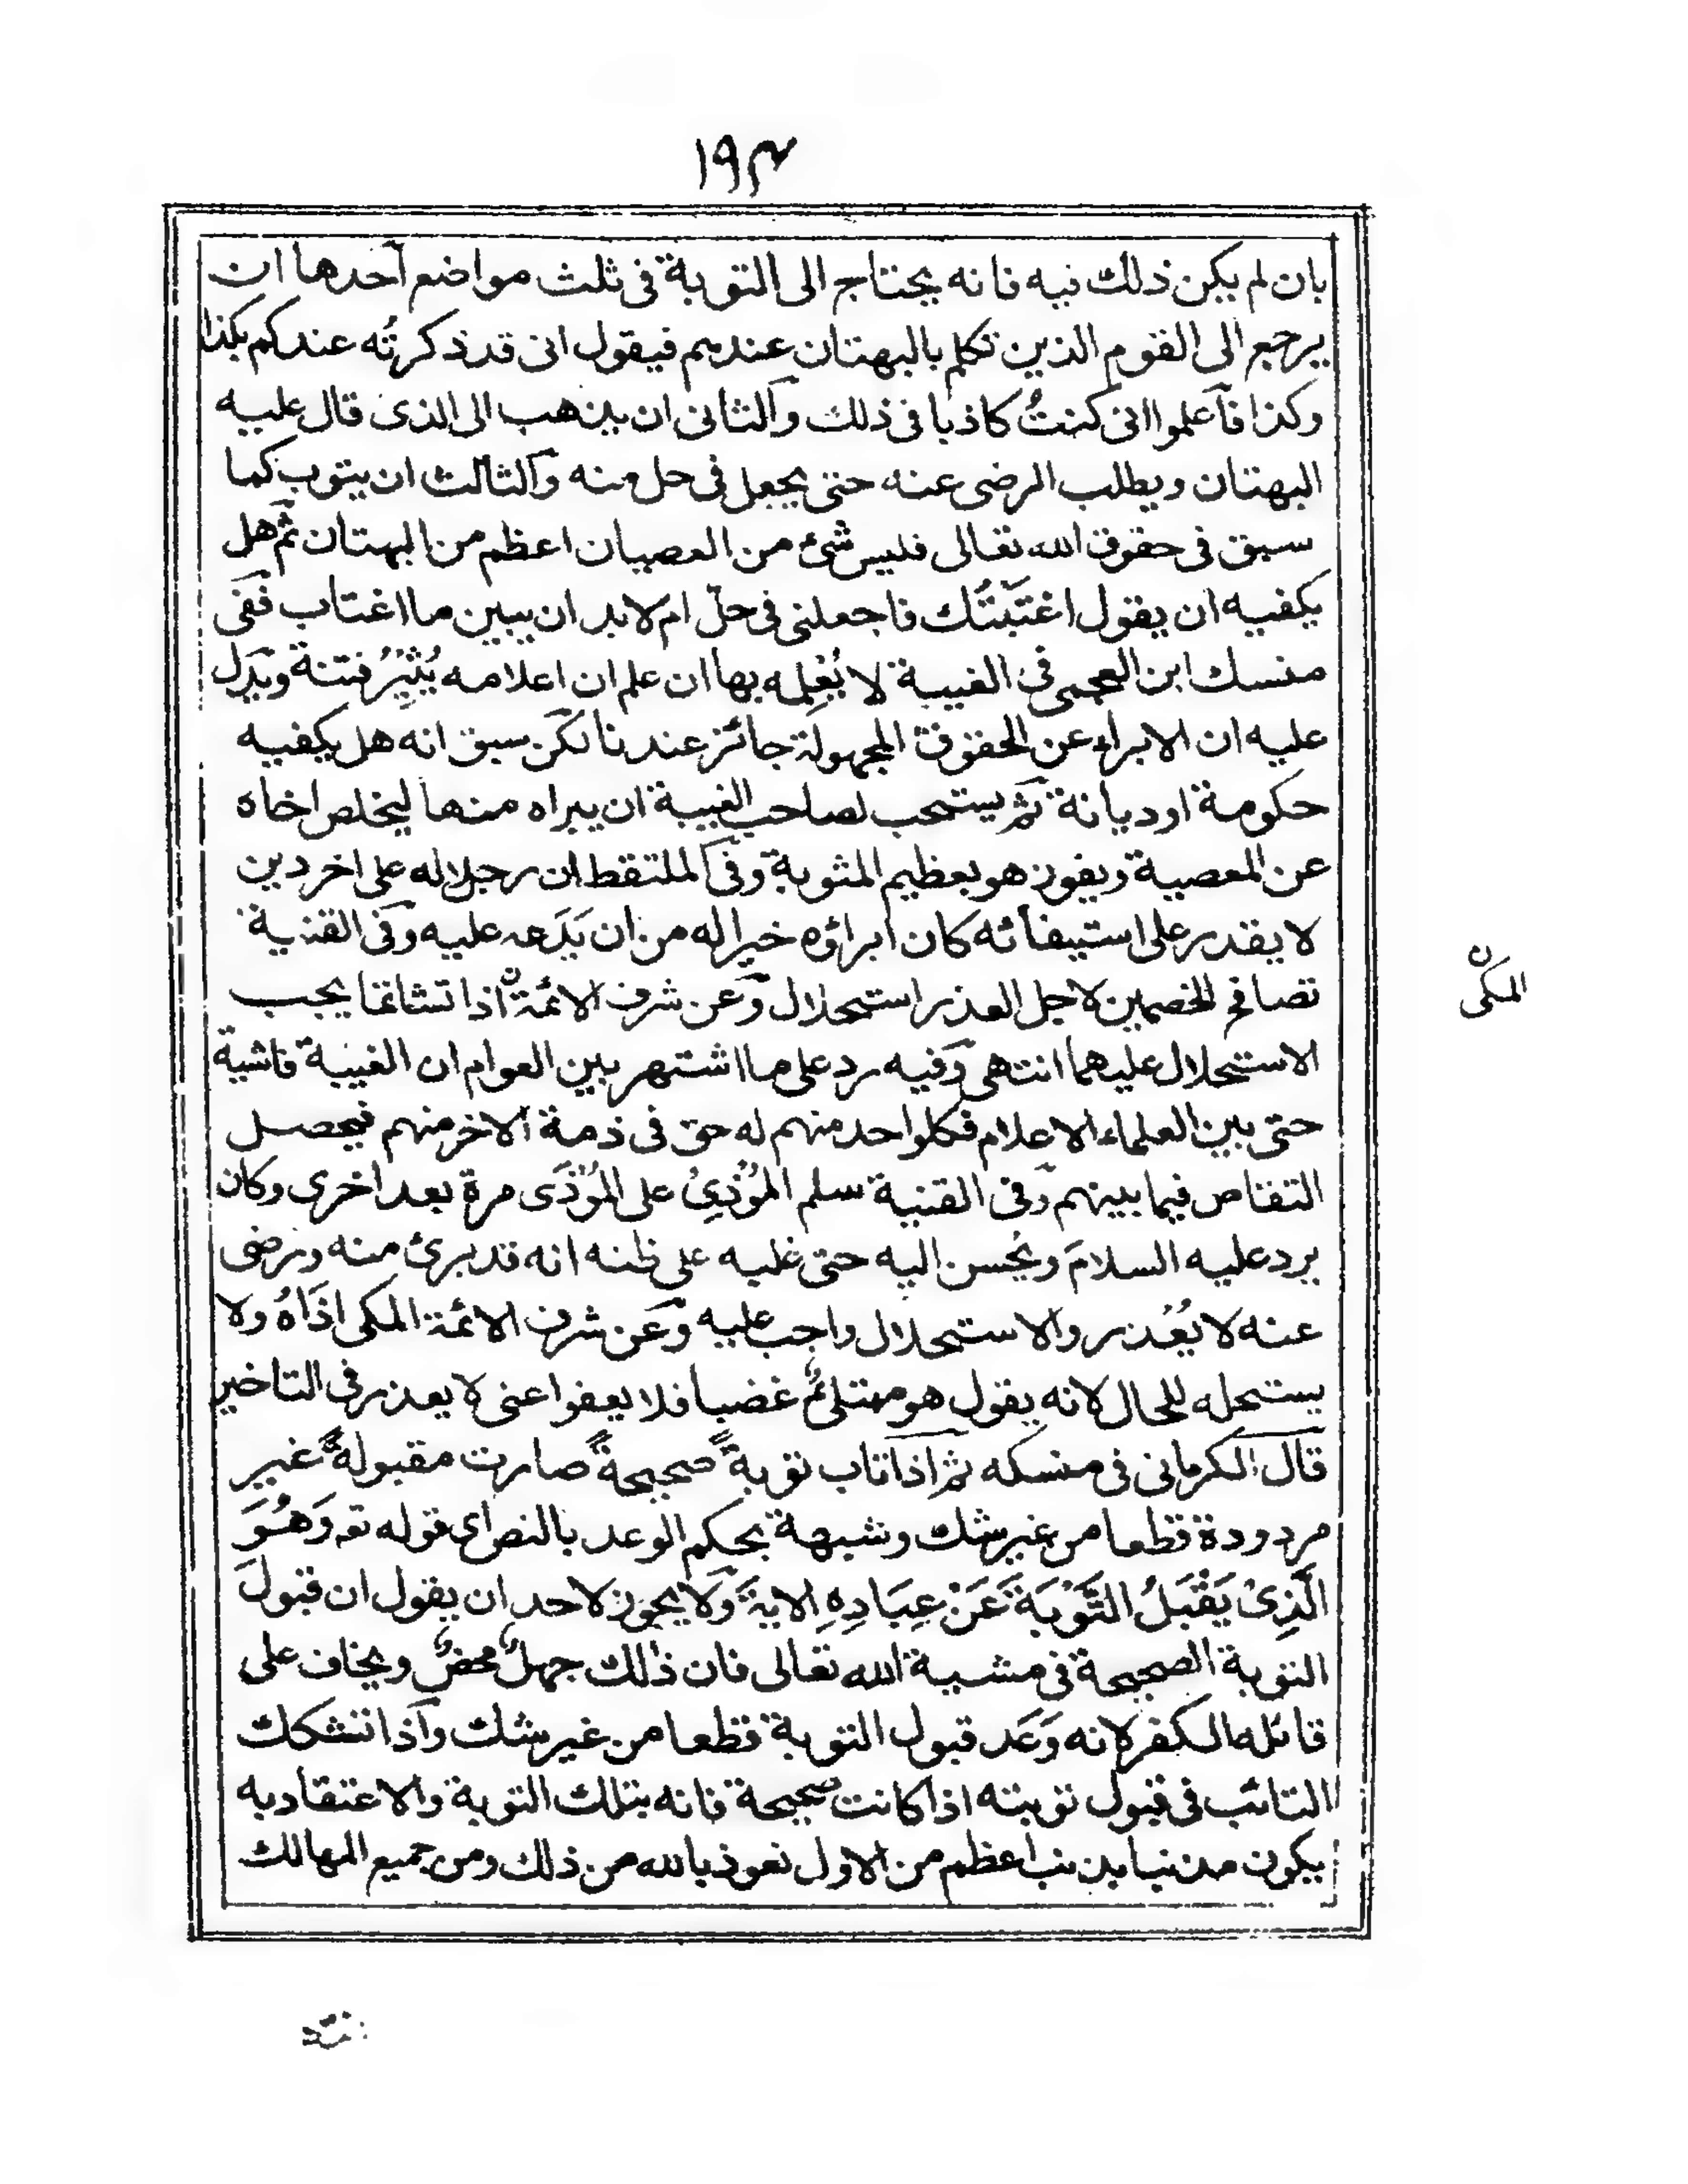 ١٩٣
بان لم يكن ذلك فيه فانه يحتاج الى التوبة فى ثلث مواضع آحدها ان
يرجع الى القوم الذين تكلم بالبهتان عندهم فيقول انى قد ذكرتُه عندكم بكذا
وكذا فآعلموا انى كنتُ كاذبا فى ذلك وآلثانى ان يذهب الى الذى قال عليه
البهتان ويطلب الرضى عنه حتى يجعل فى حل منه وآلثالث ان يتوب كما
سبق فى حقوق الله تعالى فليس شئ من العصيان اعظم من البهتان ثم هل
يكفيه ان يقول اغتَبْتُك فاجعلنى فى حلّ ام لابد ان يبين ما اغتاب ففى
منسك ابن العجمى فى الغيبة لا يُعْلِمه بها ان علم ان اعلامه يُثِيْرُ فتنة ويدل
عليه ان الابراء عن الحقوق المجهولة جائز عندنا لكن سبق انه هل يكفيه
حكومة او ديانة ثم يستحب لصاحب الغيبة ان يبراه منها ليخلص اخاه
عن المعصية ويفوز هو بعظيم المثوبة وفى الملتقط ان رجلا له على اخر دين
لا يقدر على استيفائه كان ابراؤه خيرا له من ان يَدَعه عليه وفى القنية
تصافح الخصمين لاجل العذر استحلال وعن شرف الائمة ن اذا تشاتما يجب
المكى ن
الاستحلال عليهما انتهى وفيه رد على ما اشتهر بين العوام ان الغيبة فاشية
حتى بين العلماء الاعلام فكلواحد منهم له حق فى ذمة الاخر منهم فيحصل
التقاص فيما بينهم وفى القنية سلم المُؤْذِىُ على المُؤْذَى مرة بعد اخرى وكان
يرد عليه السلامَ ويُحسن اليه حتى غلبه على ظنه انه قد برئ منه ورضى
عنه لا يُعْذر والاستحلال واجب عليه وعن شرف الائمة المكى اذَاهُ ولا
يستحله للحال لانه يقول هو ممتلئٌ غضبا فلا يعفوا عنى لا يعذر فى التاخير
قال الكرمانى فى منسكه ثم اذا تاب توبةً صحيحةً صارت مقبولةً غير
مردودة قطعا من غير شك وشبهة بحكم الوعد بالنص اى قوله تع وَهُوَ
الَّذِىْ يَقْبَلُ التَّوْبَةَ عَنْ عِبَادِهِ الاية وَلَا يجوز لاحد ان يقول ان قبول
التوبة الصحيحة فى مشية الله تعالى فان ذالك جهلٌ محضٌ ويخاف على
قائله الكفر لانه وَعَد قبول التوبة قطعا من غير شك وآذا تشكك
التائب فى قبول توبته اذا كانت صحيحة فانه بتلك التوبة والاعتقاد به
يكون مذنبا بذنب اعظم من الاول نعوذ بالله من ذلك ومن جميع المهالك